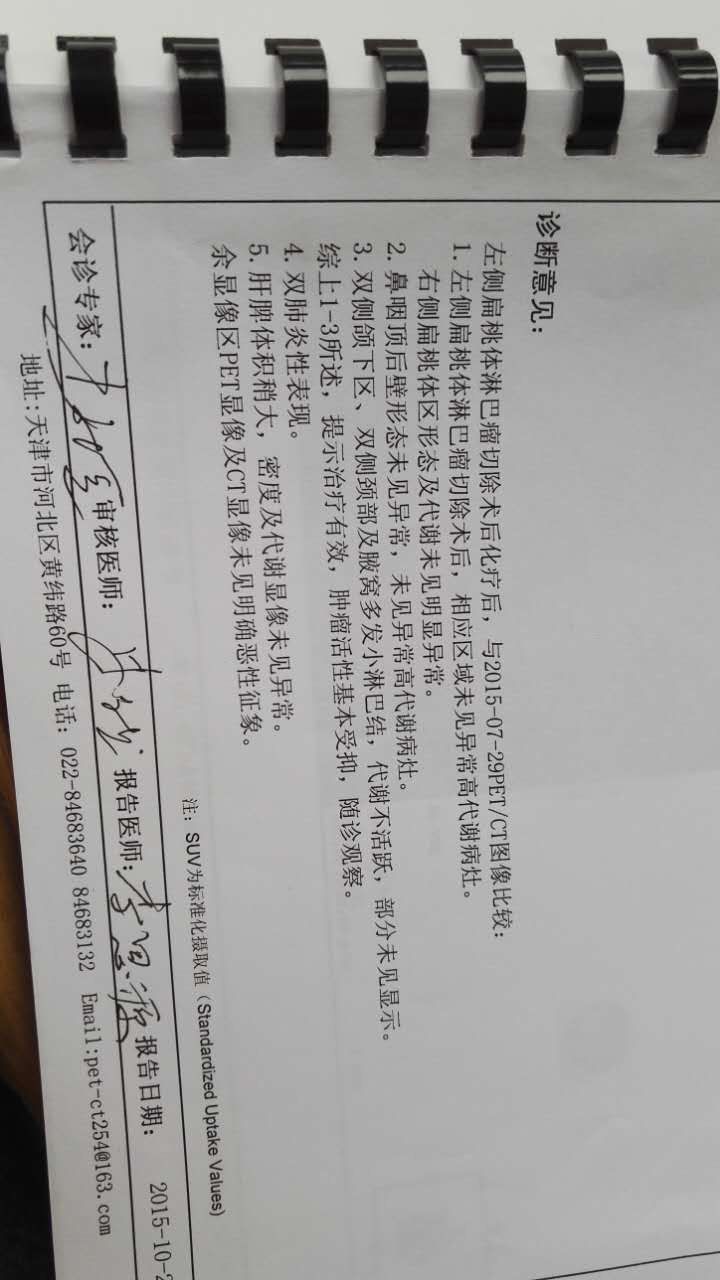 诊断意见:
左侧扁桃体淋巴瘤切除术后化疗后，与2015-07-29PET/CT图像比较:
1. 左侧扁桃体淋巴瘤切除术后，相应区域未见异常高代谢病灶。
右侧扁桃体区形态及代谢未见明显异常。
2. 鼻咽顶后壁形态未见异常，未见异常高代谢病灶。
3. 双侧颌下区、双侧颈部及腋窝多发小淋巴结，代谢不活跃，部分未见显示。
综上1-3所述，提示治疗有效，肿瘤活性基本受抑，随诊观察。
4. 双肺炎性表现。
5. 肝脾体积稍大，密度及代谢显像未见异常。
余显像区PET显像及CT显像未见明确恶性征象。
注: SUV为标准化摄取值 (Standardized Uptake Values)
会诊专家: 审核医师: 报告医师: 报告日期: 2015-10-2
地址:天津市河北区黄纬路60号 电话: 022-84683640 84683132 Email:pet-ct254@163.com